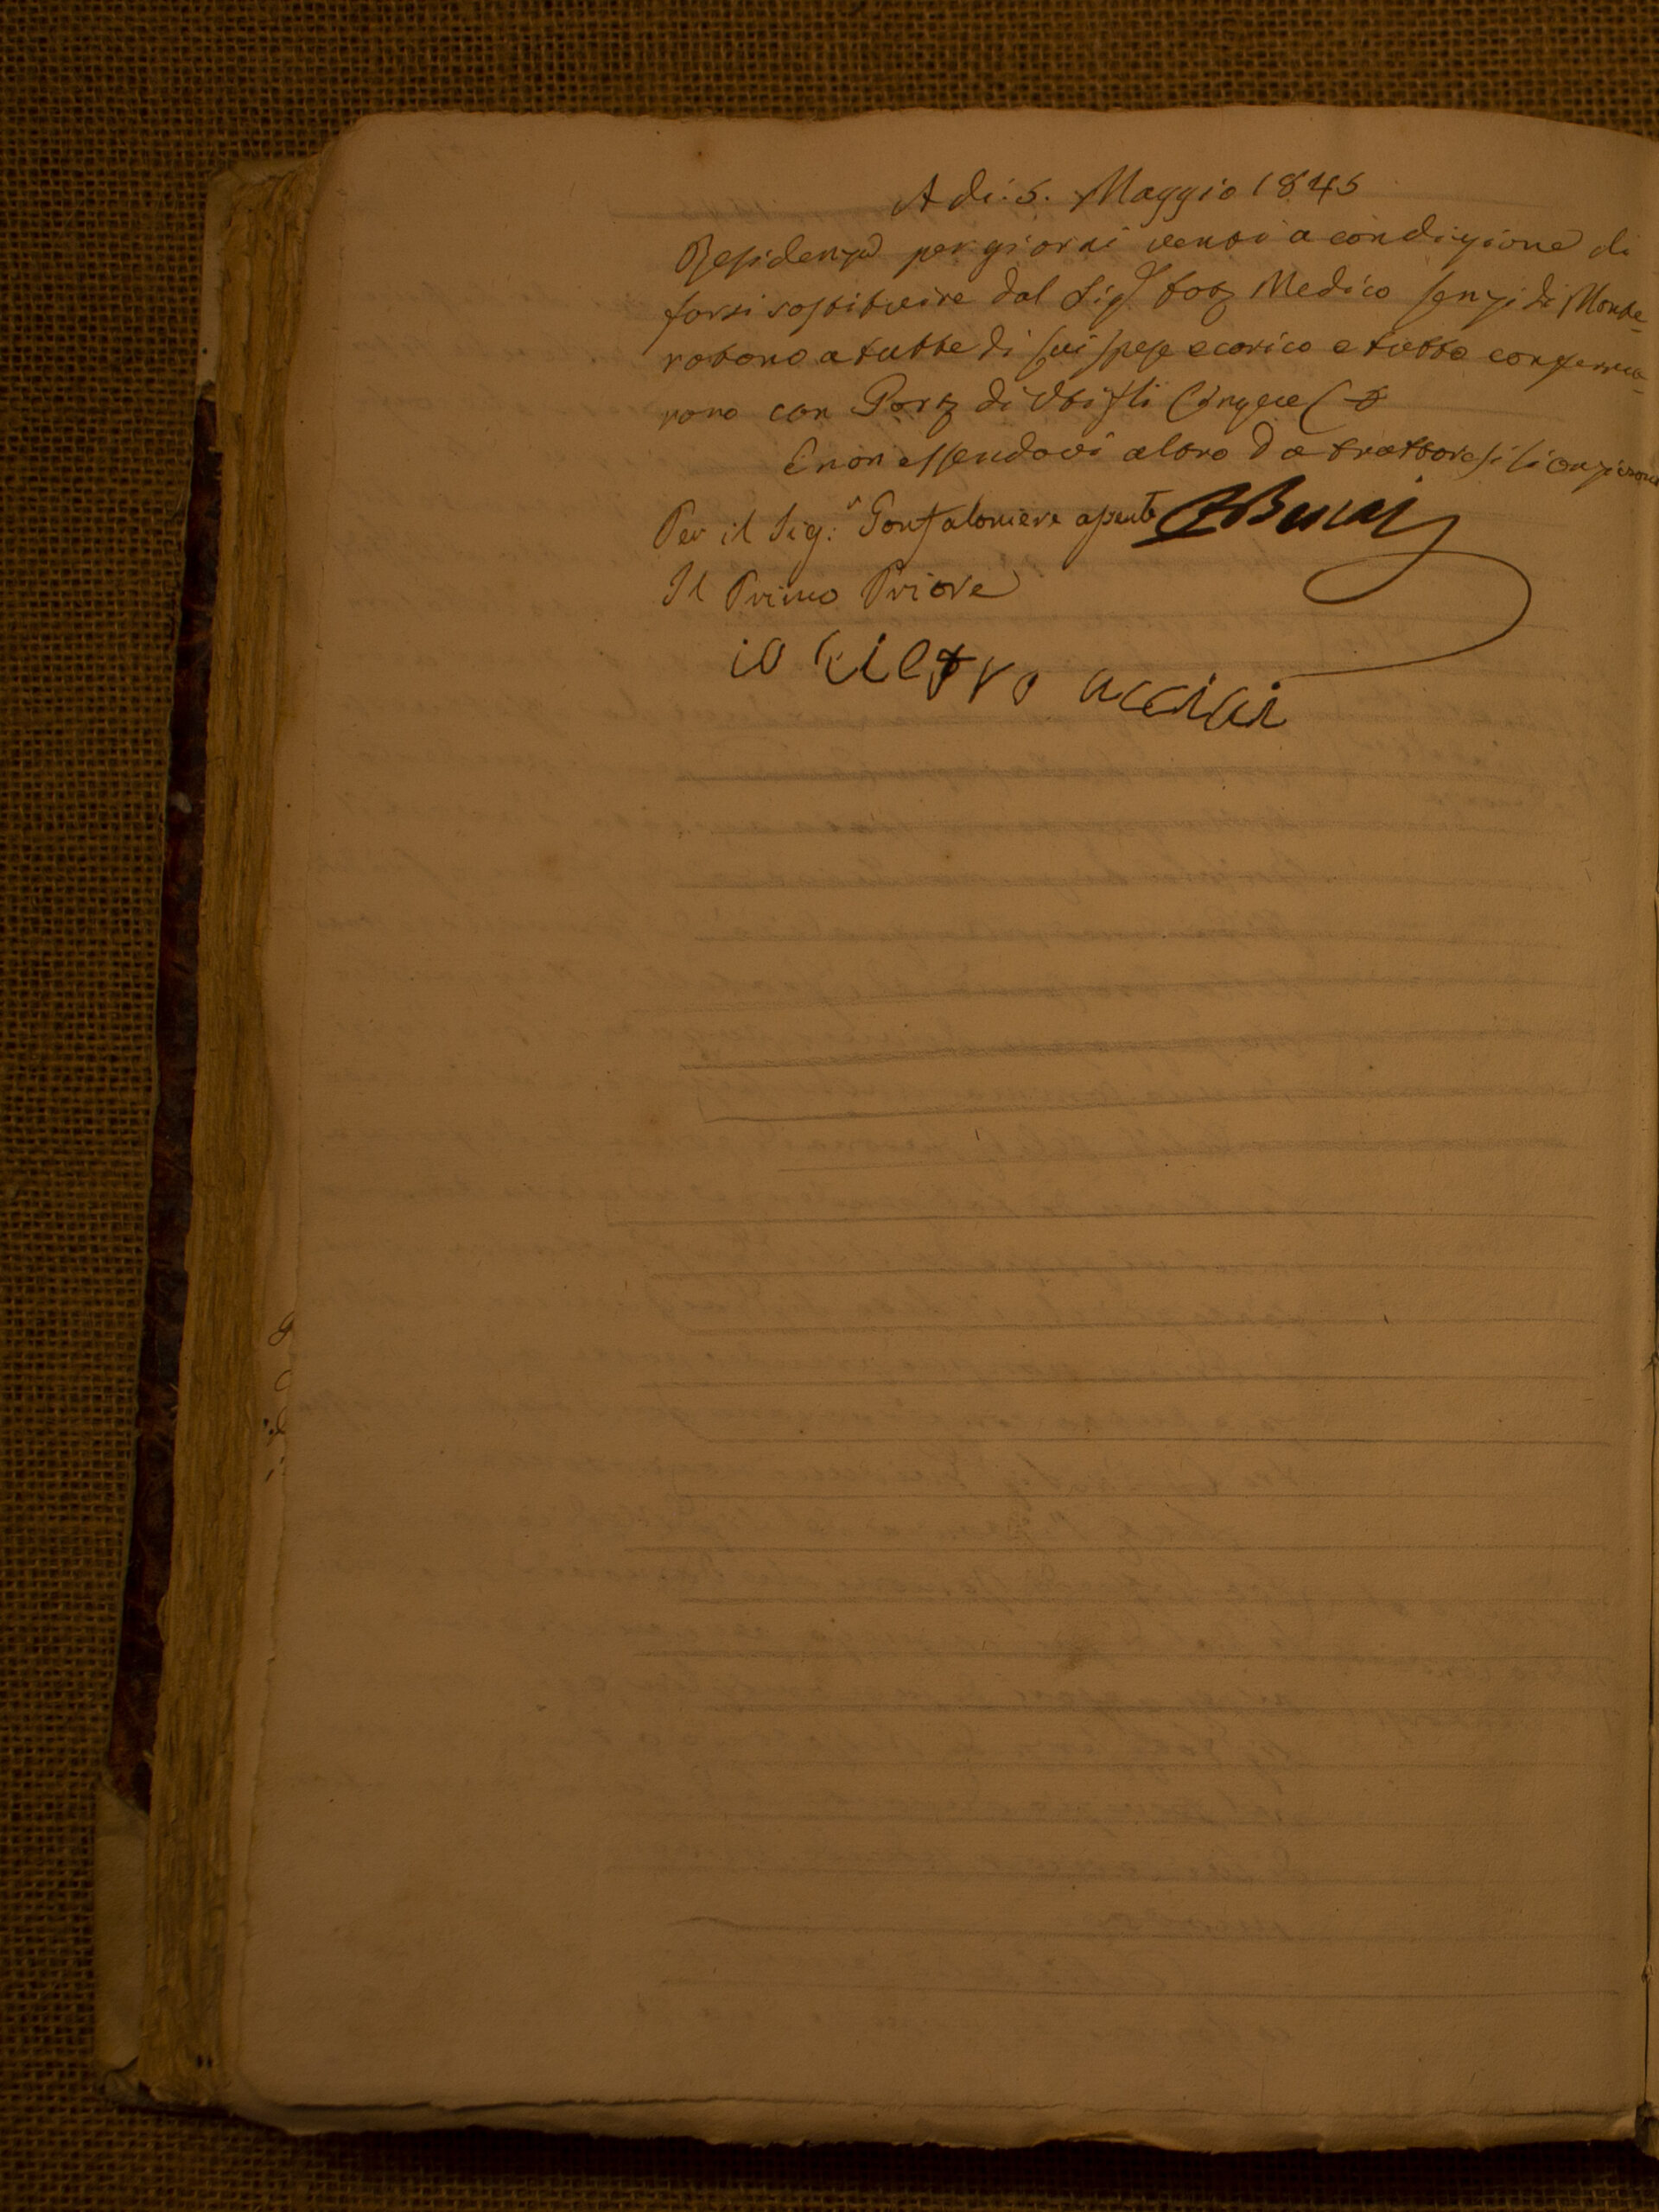 A di. 5. Maggio 1845
Residenza per giorni venti a condizione di
farsi sostituire dal Sig.r Dott. Medico di Monte
robano a tutte di sui spese e carico e tutto conferma
rono con Part. di Voti
E non essendovi altro da trattare si
Per il Sig.r Gonfaloniere assente
Il Primo Priore
io